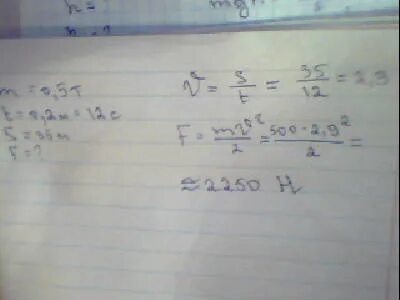 h = ?
mgh
h = ?
m = 0,5т
t = 0,2м = 12с
S = 35м
F = ?
V = S/t = 35/12 = 2,9
F = mV²/2 = 500·2,9²/2 =
≈ 2250 Н